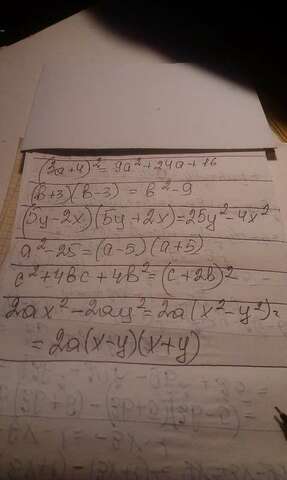 (3a+4)²=9a²+24a+16
(b+3)(b-3)=b²-9
(5y-2x)(5y+2x)=25y²-4x²
a²-25=(a-5)(a+5)
c²+4bc+4b²=(c+2b)²
2ax²-2ay²=2a(x²-y²)=
=2a(x-y)(x+y)